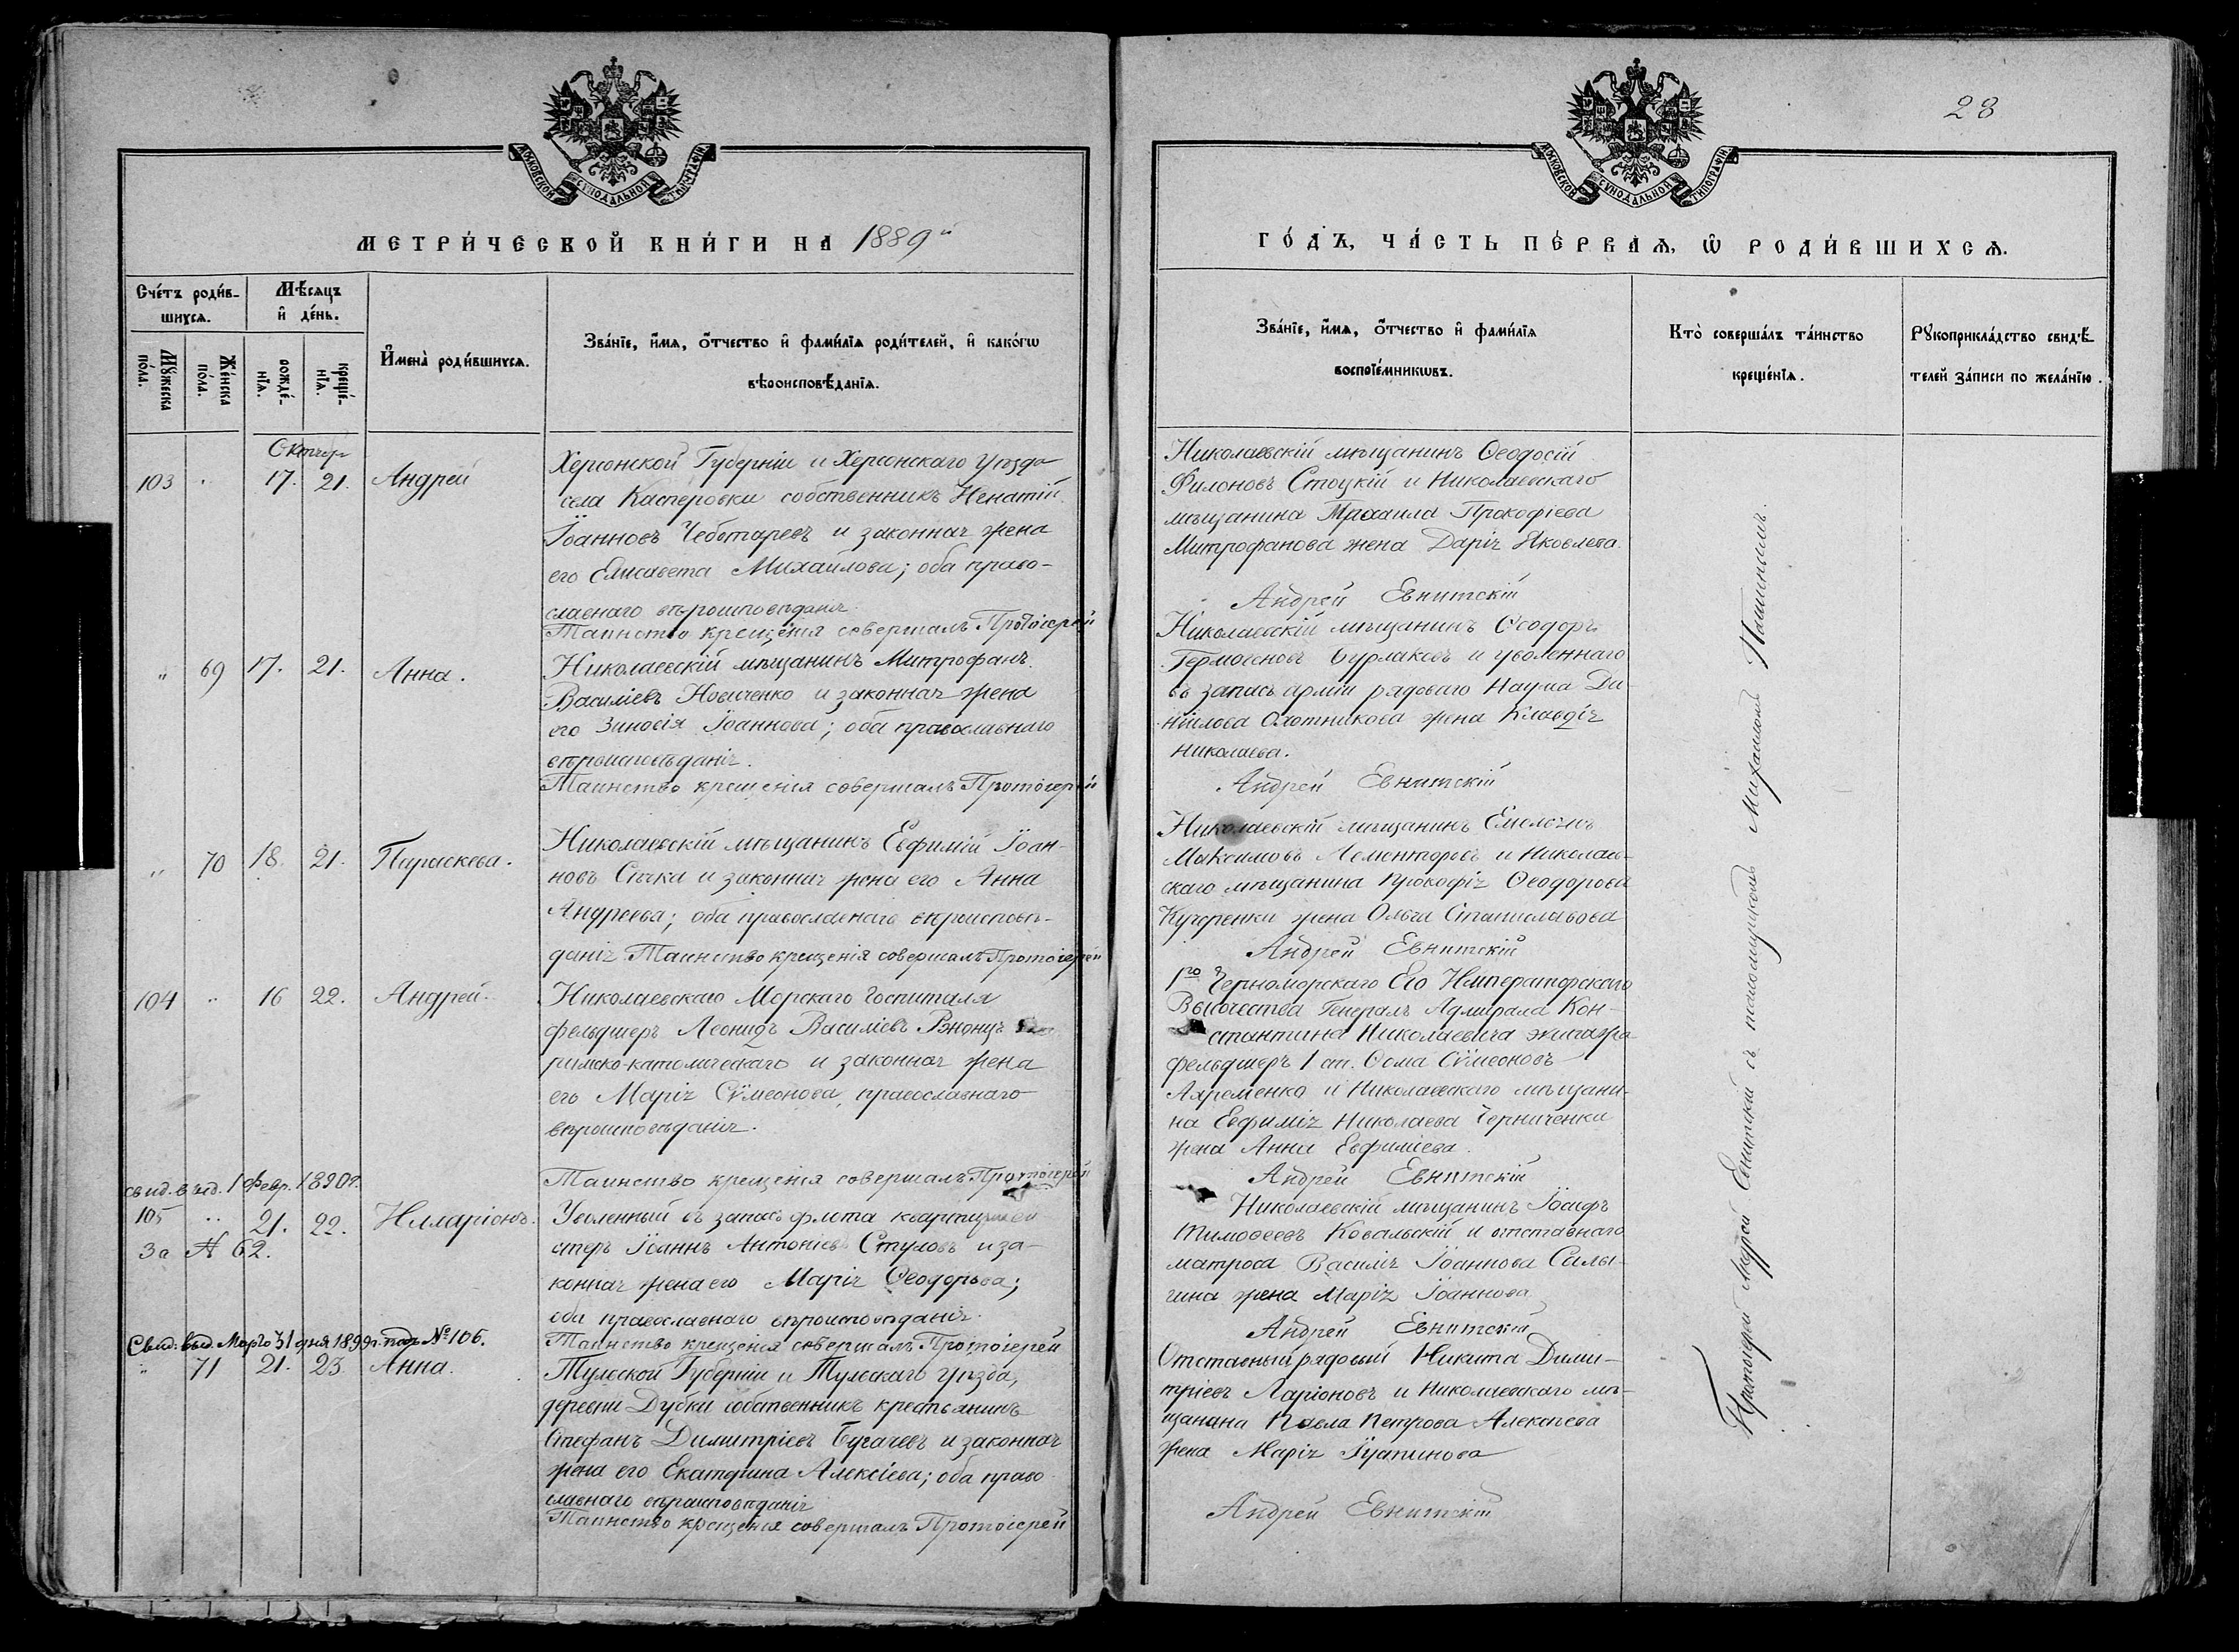 МОСКОВСКОЙ СΥНОДАЛЬНОЙ ТИПОГРАФІИ
МЕТРИ́ЧЕСКОЙ КНИ́ГИ НА 1889й
Сче́тъ роди́в-
шихся.
Мѣ́сяцъ
и де́нь.
Мꙋ́жеска
по́ла.
Же́нска
по́ла.
рожде́-
нїѧ.
креще́-
нїѧ.
И҆мена̀ роди́вшихсѧ.
Зва́нїе, и҆́мѧ, ѻ҆́тчество и҆ фами́лїѧ роди́телей, и҆ како́гѡ
вѣроисповѣ́данїѧ.
Октяр
103 " 17. 21. Андрей
Херсонской Губерніи и Херсонскаго Уѣзда
села Касперовки собственникъ Игнатій
Іоанновъ Чеботаревъ и законная жена
его Елисавета Михайлова; оба право-
славнаго вѣроисповѣданія.
Таинство крещенія совершалъ Протоіерей
" 69 17. 21. Анна.
Николаевскій мѣщанинъ Митрофанъ
Василіевъ Новиченко и законная жена
его Зиновія Іоаннова; оба православнаго
вѣроисповѣданія.
Таинство крещенія совершалъ Протоіерей
" 70 18. 21. Параскева.
Николаевскій мѣщанинъ Евфимій Іоан-
новъ Сѣчка и законная жена его Анна
Андреева; оба православнаго вѣроисповѣ-
данія Таинство крещенія совершалъ Протоіерей
104 " 16 22. Андрей.
Николаевскаго Морскаго Госпиталя
фельдшеръ Леонидъ Василіевъ
римско-католическаго и законная жена
его Марія Сѵмеонова, православнаго
вѣроисповѣданія.
свид. выд. 1 Февр. 1890 г.
Таинство крещенія совершалъ Протоіерей
105 " 21. 22. Илларіонъ.
За № 62.
Уволенный въ запасъ флота квартирмей
стеръ Іоаннъ Антоніевъ Стуловъ и за-
конная жена его Марія Ѳеодорова;
оба православнаго вѣроисповѣданія.
Свид. выд. Март 31 дня 1899 г. подъ № 106.
Таинство крещенія совершалъ Протоіерей
" 71 21. 23. Анна.
Тульской Губерніи и Тульскаго Уѣзда,
деревни Дубки собственникъ крестьянинъ
Стефанъ Димитріевъ Бугачевъ и законная
жена его Екатерина Алексіева; оба право
славнаго вѣроисповѣданія
Таинство крещенія совершалъ Протоіерей
28
МОСКОВСКОЙ СΥНОДАЛЬНОЙ ТИПОГРАФІИ
ГО́ДЪ, ЧА́СТЬ ПЕ́РВАѦ, Ѡ҆ РОДИ́ВШИХСѦ.
Зва́нїе, и҆́мѧ, ѻ҆́тчество и҆ фами́лїѧ
воспрїе́мникѡвъ.
Кто̀ соверша́лъ та́инство
креще́нїѧ.
Рꙋкоприкла́дство свидѣ́-
телей за́писи по жела́нїю.
Николаевскій мѣщанинъ Ѳеодосій
Филоновъ Стоцкій и Николаевскаго
мѣщанина Михаила Прокофіева
Митрофанова жена Дарія Яковлева.
Андрей Евнитскій
Николаевскій мѣщанинъ Ѳеодоръ
Гермогеновъ Бурлаковъ и уволеннаго
въ запасъ арміи рядоваго Наума Да-
ніилова Охотникова жена Клавдія
Николаева.
Андрей Евнитскій
Николаевскій мѣщанинъ Емеліанъ
Максимовъ Лементоровъ и Николаев-
скаго мѣщанина Прокофія Ѳеодорова
Кучеренки жена Ольга Станиславова
Андрей Евнитскій
1го Черноморскаго Его Императорскаго
Высочества Генералъ Адмирала Кон-
стантина Николаевича экипажа
фельдшеръ 1 ст. Ѳома Сѵмеоновъ
Ахременко и Николаевскаго мѣщани-
на Евфимія Николаева Черниченки
жена Анна Евфиміева.
Андрей Евнитскій
Николаевскій мѣщанинъ Іосифъ
Тимоѳеевъ Ковальскій и отставнаго
матроса Василія Іоаннова Салы-
гина жена Марія Іоаннова
Андрей Евнитскій
Отставный рядовый Никита Дими-
тріевъ Ларіоновъ и Николаевскаго мѣ-
щанина Павла Петрова Алексѣева
жена Марія
Андрей Евнитскій
Протоіерей Андрей Евнитскій съ псаломщикомъ Михаиломъ Пашинымъ.